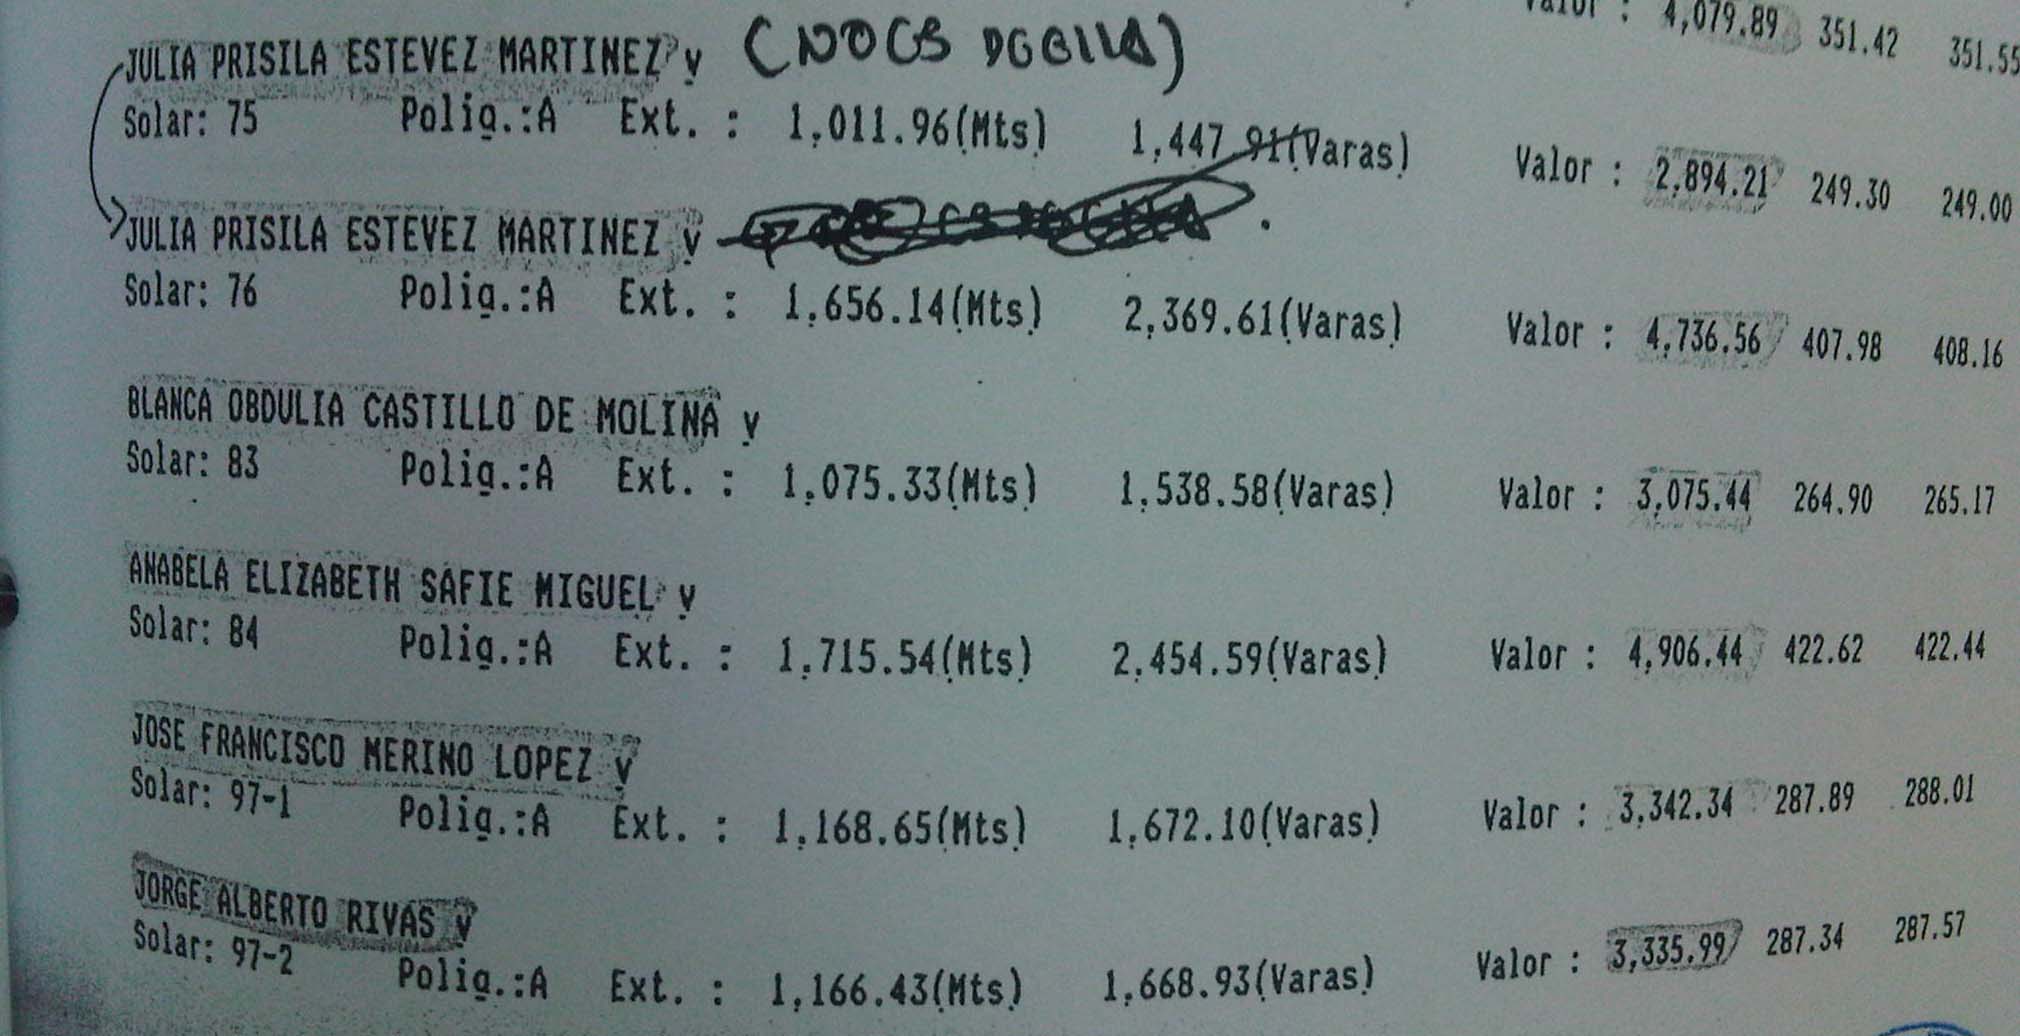 Valor : 4,079.89 351.42 351.55
JULIA PRISILA ESTEVEZ MARTINEZ y (NO ES DE ELLA)
Solar: 75 Polig.:A Ext. : 1,011.96(Mts) 1,447.91(Varas) Valor : 2,894.21 249.30 249.00
JULIA PRISILA ESTEVEZ MARTINEZ y
Solar: 76 Polig.:A Ext. : 1,656.14(Mts) 2,369.61(Varas) Valor : 4,736.56 407.98 408.16
BLANCA OBDULIA CASTILLO DE MOLINA y
Solar: 83 Polig.:A Ext. : 1,075.33(Mts) 1,538.58(Varas) Valor : 3,075.44 264.90 265.17
ANABELA ELIZABETH SAFIE MIGUEL y
Solar: 84 Polig.:A Ext. : 1,715.54(Mts) 2,454.59(Varas) Valor : 4,906.44 422.62 422.44
JOSE FRANCISCO MERINO LOPEZ y
Solar: 97-1 Polig.:A Ext. : 1,168.65(Mts) 1,672.10(Varas) Valor : 3,342.34 287.89 288.01
JORGE ALBERTO RIVAS y
Solar: 97-2 Polig.:A Ext. : 1,166.43(Mts) 1,668.93(Varas) Valor : 3,335.99 287.34 287.57